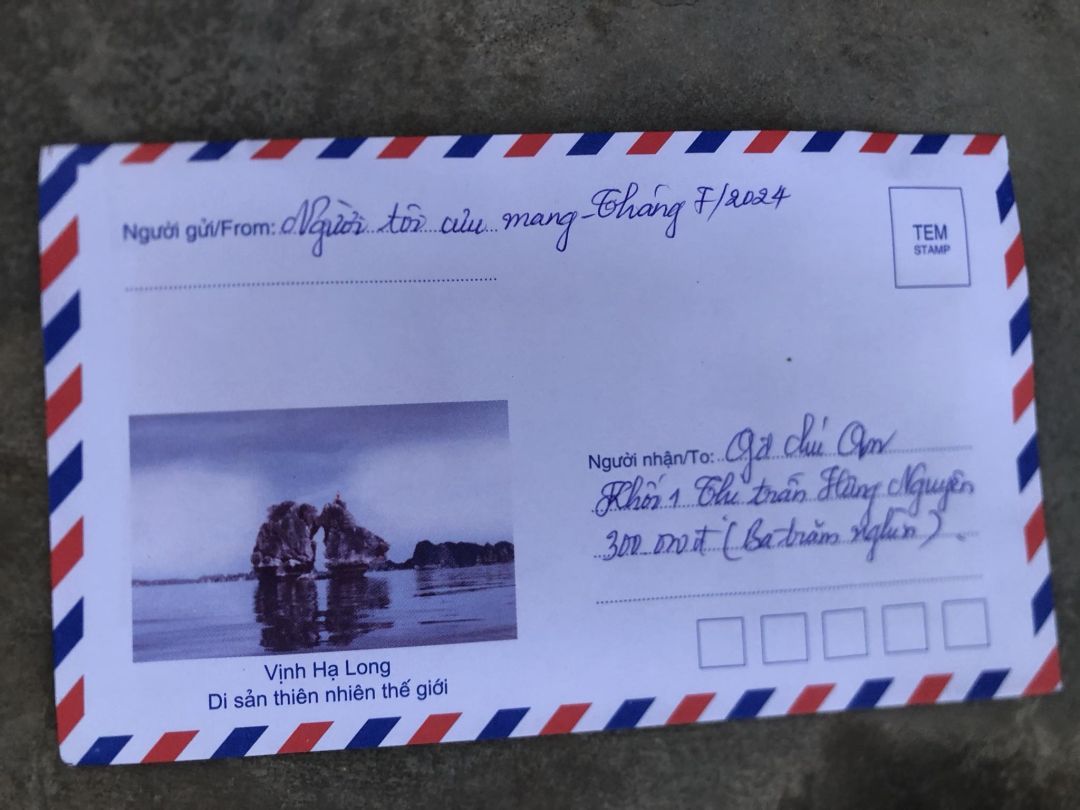 Người gửi/From: Người tôi cưu mang - Tháng 7/2024
TEM
STAMP
Người nhận/To: Gđ chú An
Khối 1 Thị trấn Hưng Nguyên
300 000đ (Ba trăm nghìn).
Vịnh Hạ Long
Di sản thiên nhiên thế giới